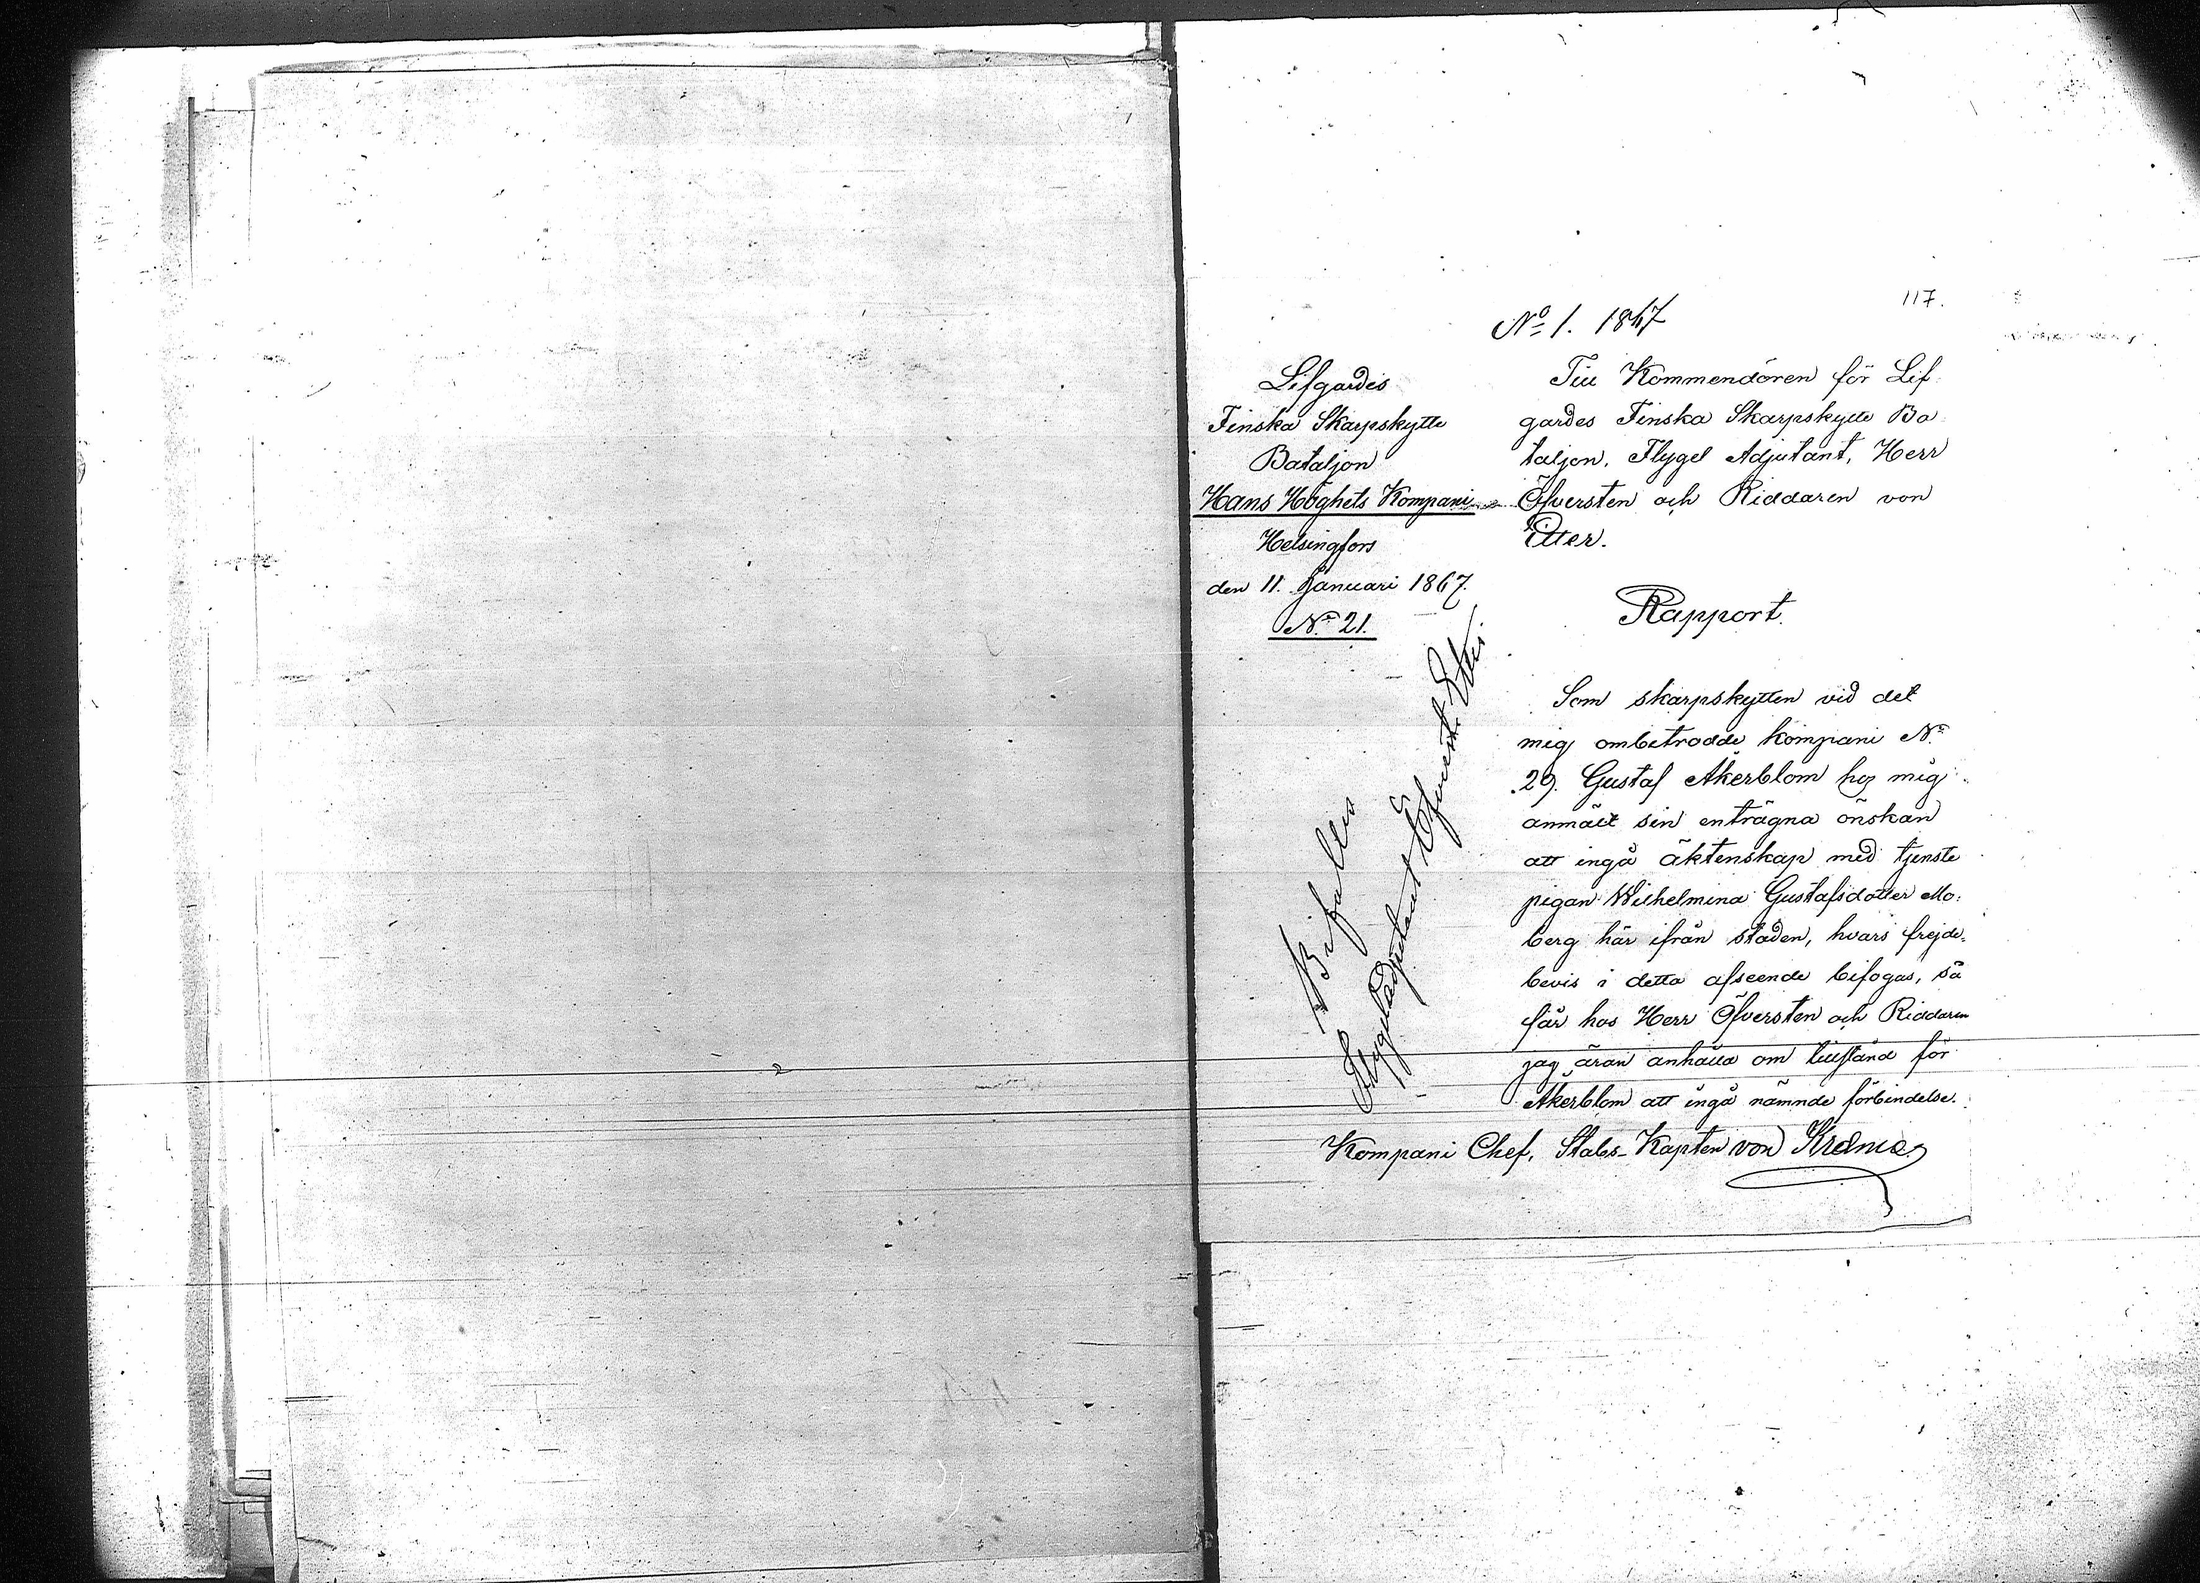 117.
No 1. 1867
Lifgardes
Finska Skarpskytte
Bataljon
Hans Höghets Kompani
Helsingfors
den 11. Januari 1867.
No. 21.
Till Kommendören för Lif
gardes Finska Skarpskytte Ba
taljon, Flygel Adjutant, Herr
Öfversten och Riddaren von
Etter.
Rapport.
Som skarpskytten vid det
mig ombetrodde kompani No.
29. Gustaf Åkerblom hos mig
anmält sin enträgna önskan
att ingå äktenskap med tjenste
pigan Wilhelmina Gustafsdotter Mo-
berg här ifrån staden, hvars frejde-
bevis i detta afseende bifogas, så
får hos Herr Öfversten och Riddaren
jag äran anhålla om tillstånd för
Åkerblom att ingå nämnde förbindelse.
Kompani Chef, Stabs-Kapten von
Bifalles
Flygeladjutant Öfverste Etter.